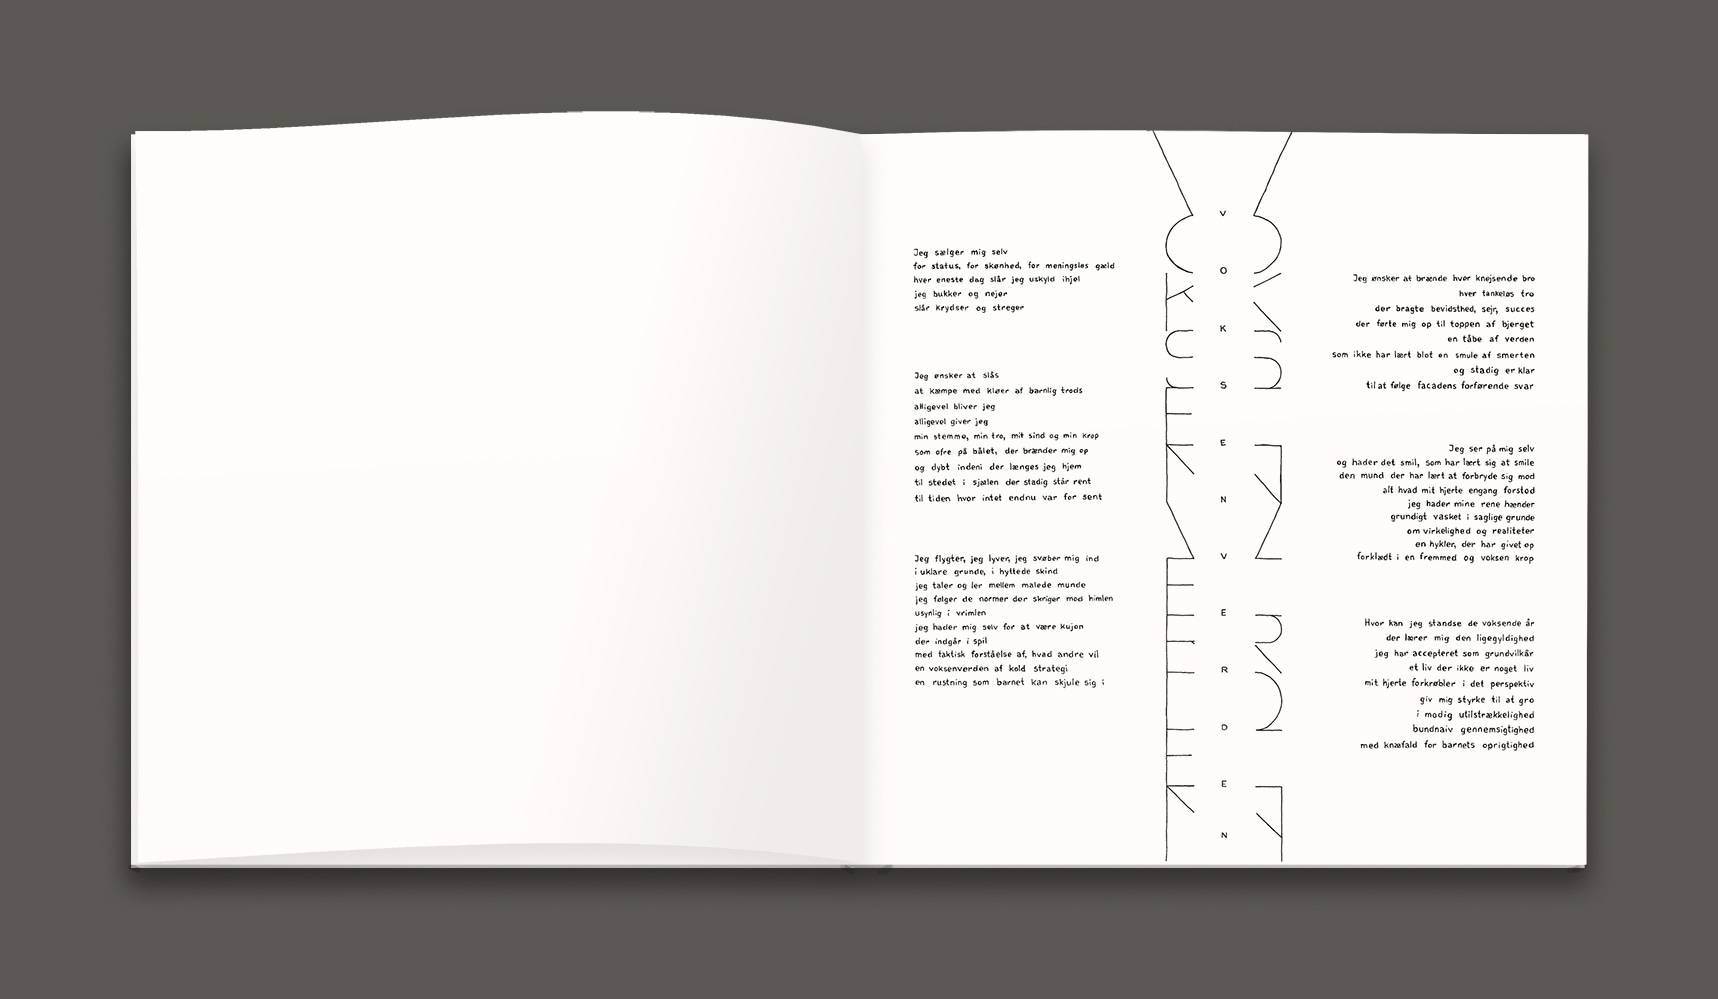 Jeg sælger mig selv
for status, for skønhed, for meningsløs gæld
hver eneste dag slår jeg uskyld ihjel
jeg bukker og nejer
slår krydser og streger
Jeg ønsker at slås
at kæmpe med kløer af barnlig trods
alligevel bliver jeg
alligevel giver jeg
min stemme, min tro, mit sind og min krop
som ofre på bålet, der brænder mig op
og dybt indeni der længes jeg hjem
til stedet i sjælen der stadig står rent
til tiden hvor intet endnu var for sent
Jeg flygter, jeg lyver, jeg svøber mig ind
i uklare grunde, i hyttede skind
jeg taler og ler mellem malede munde
jeg følger de normer der skriger mod himlen
usynlig i vrimlen
jeg hader mig selv for at være kujon
der indgår i spil
med taktisk forståelse af, hvad andre vil
en voksenverden af kold strategi
en rustning som barnet kan skjule sig i
V
O
K
S
E
N
V
E
R
D
E
N
Jeg ønsker at brænde hver knejsende bro
hver tankeløs tro
der bragte bevidsthed, sejr, succes
der førte mig op til toppen af bjerget
en tåbe af verden
som ikke har lært blot en smule af smerten
og stadig er klar
til at følge facadens forførende svar
Jeg ser på mig selv
og hader det smil, som har lært sig at smile
den mund der har lært at forbryde sig mod
alt hvad mit hjerte engang forstod
jeg hader mine rene hænder
grundigt vasket i saglige grunde
om virkelighed og realiteter
en hykler, der har givet op
forklædt i en fremmed og voksen krop
Hvor kan jeg standse de voksende år
der lærer mig den ligegyldighed
jeg har accepteret som grundvilkår
et liv der ikke er noget liv
mit hjerte forkrøbler i det perspektiv
giv mig styrke til at gro
i modig utilstrækkelighed
bundnaiv gennemsigtighed
med knæfald for barnets oprigtighed